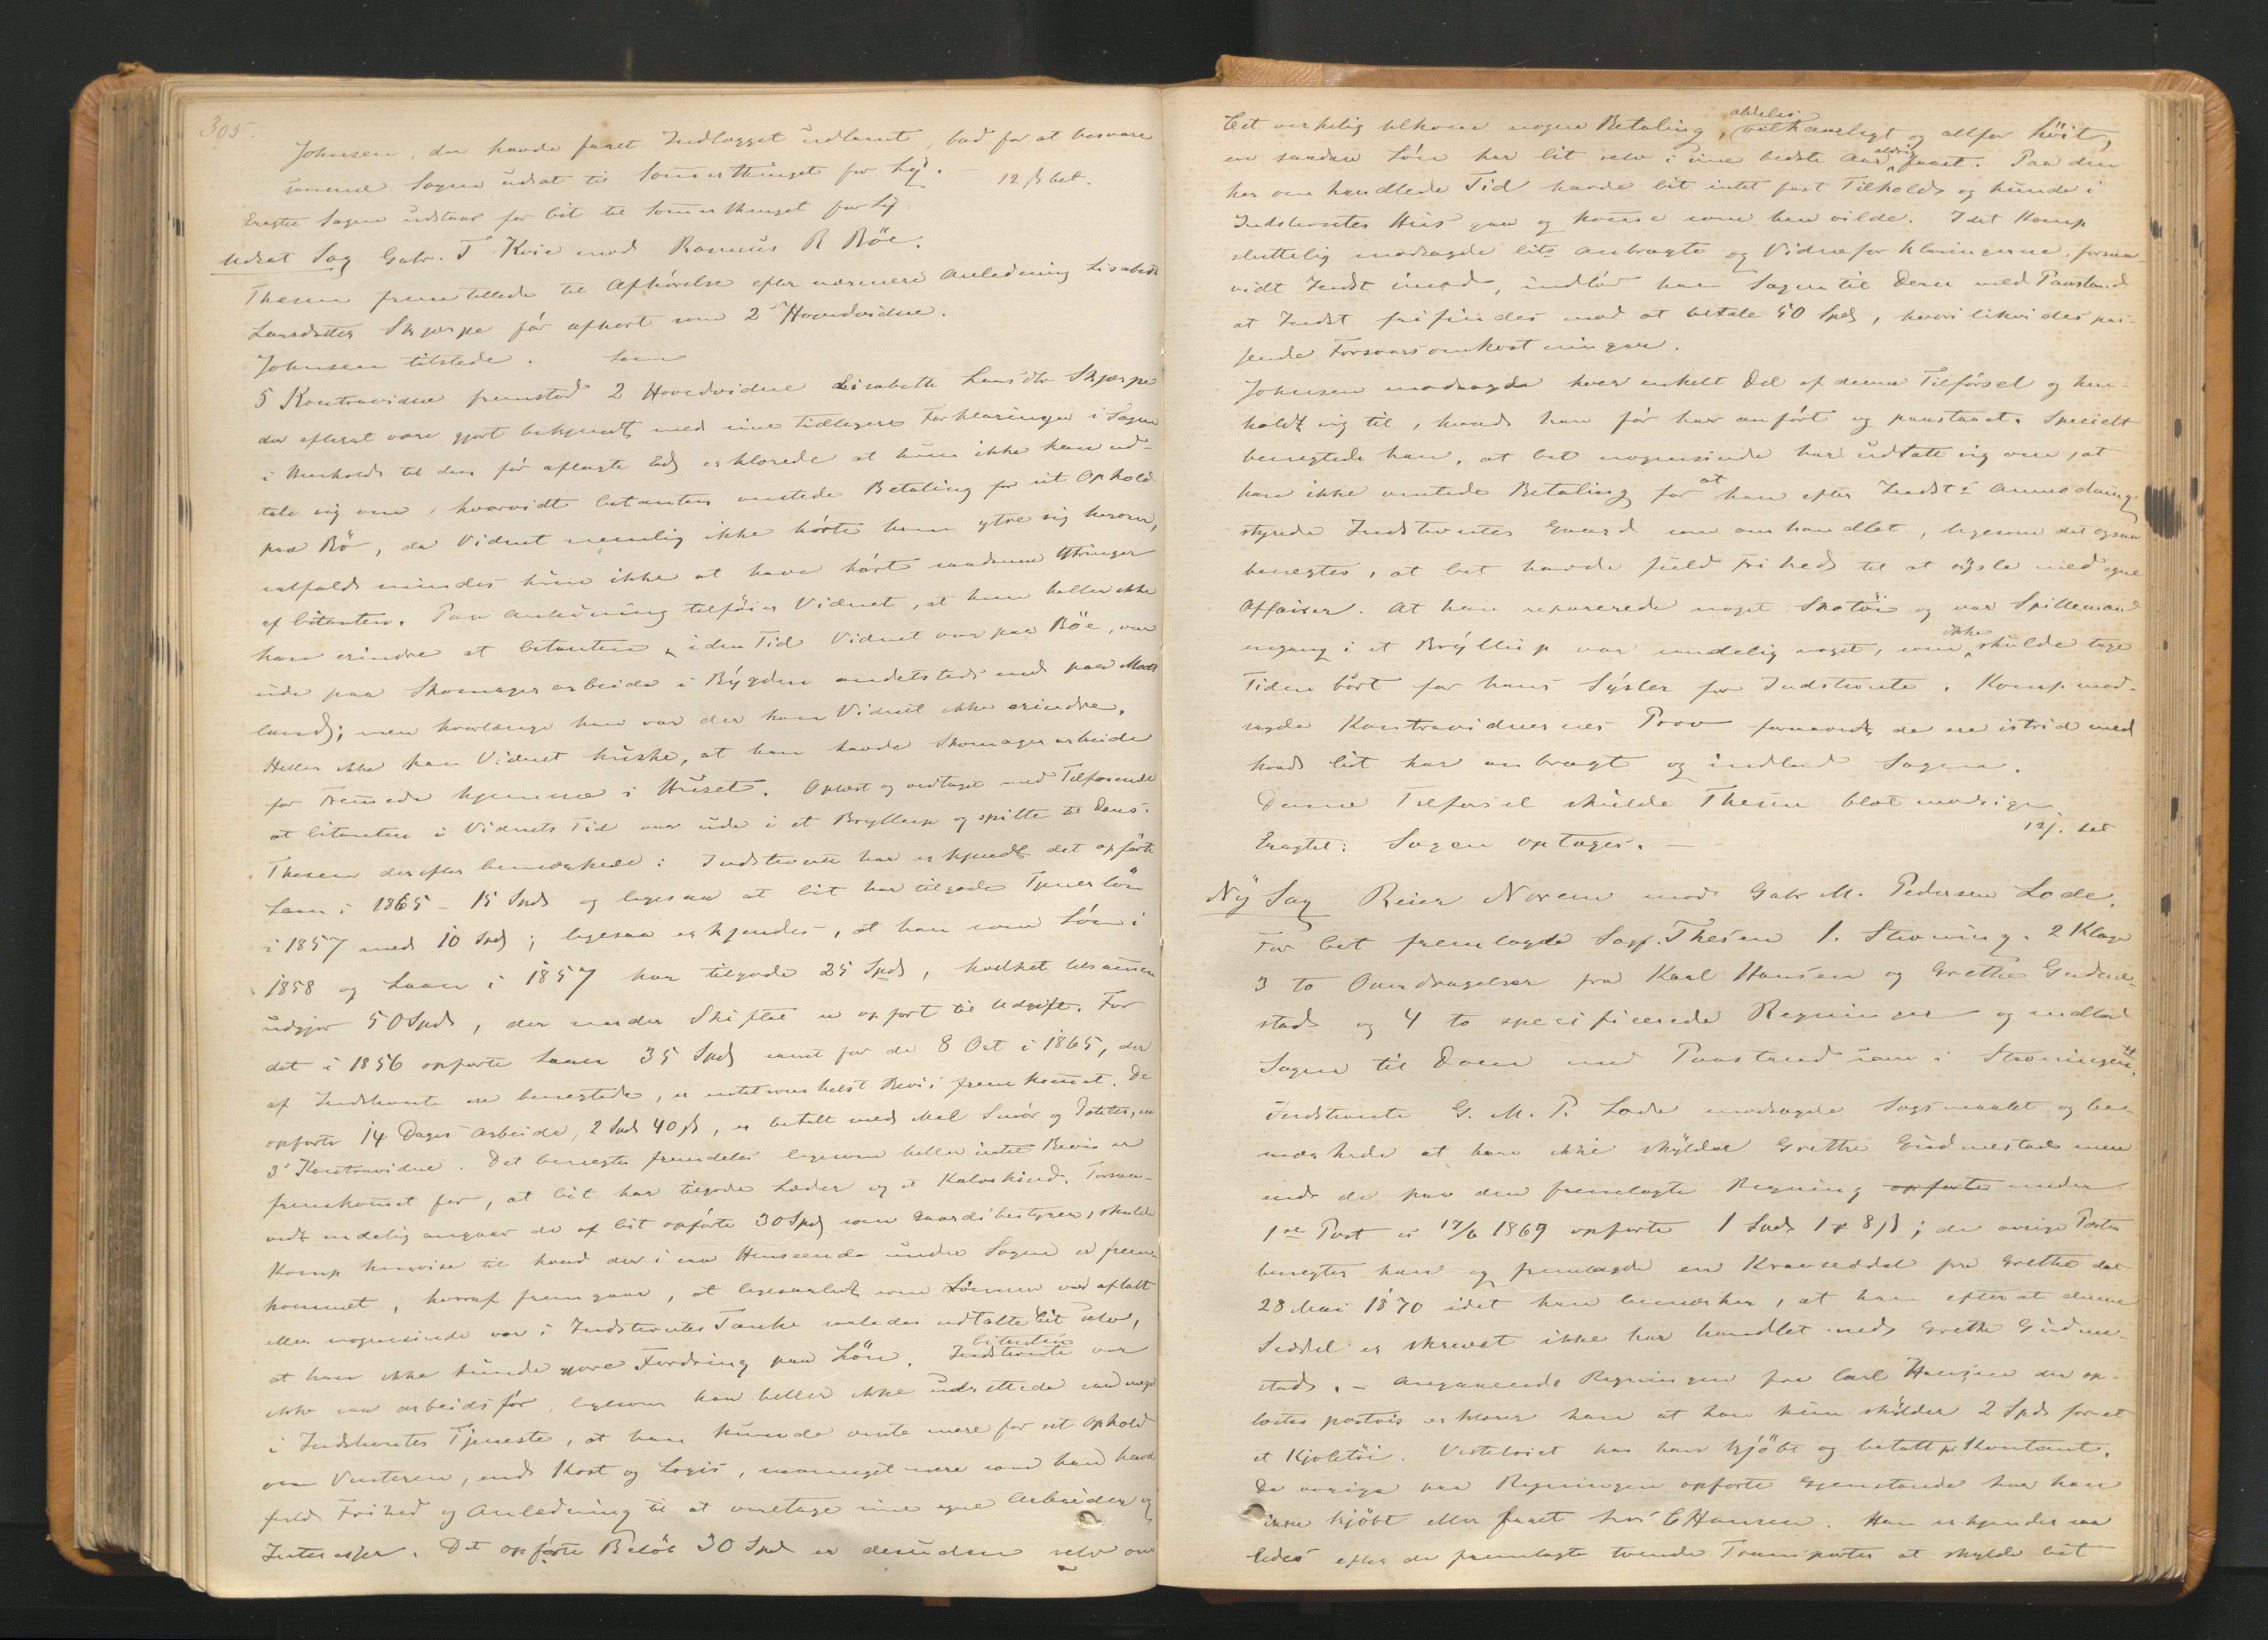 305.
Johnsen, der havde faaet Indlægget udlaant, bad for at besvare
samme Sagen udsat til Sommerthinget for Lye.
12 β bet.
Eragtet Sagen udstaar for Cit. til Sommerthinget for Ly
Udsat Sag Gabr. T Kvie mod Rasmus R Böe.
Thesen fremstillede til Afhörelse efter nærmere Anledning Lisabeth
Larsdatter Skjærpe för afhört som 2det Hovedvidne.
Johnsen tilstede. Som
5 Kontravidne fremstod 2 Hovedvidne Lisabeth Larsdtr Skjærpe
der efterat være gjort bekjendt med sine tidligere Forklaringer i Sagen
i Henhold til den för aflagte Ed erklærede at hun ikke kan ud-
tale sig om, hvorvidt Citanten ventede Betaling for sit Ophold
paa Bö, da Vidnet nemlig ikke hörte ham ytre sig herom,
ialfald mindes hun ikke at have hört saadanne Ytringer
af Citanten. Paa Anledning tilföier Vidnet, at hun heller ikke
kan erindre at Citanten, i den Tid Vidnet var paa Böe, var
ude paa Skomagerarbeide i Bygden andetsteds end paa Mod-
land; men hvorlænge han var der kan Vidnet ikke erindre.
Heller ikke kan Vidnet huske, at han havde Skomagerarbeide
for Fremmede hjemme i Huset. Oplæst og vedtaget med Tilföiende
at Citanten i Vidnets Tid var ude i et Bryllup og spilte til Dans.
Thesen derefter bemærkede: Indstevnte har erkjendt det opförte
Laan i 1865 - 15 Spd og ligesaa at Cit har tilgode Tjenerlön
i 1857 med 10 Spd; ligesaa erkjendes, at han som Lön i
1858 og Laan i 1857 har tilgode 25 Spd, hvilket tilsammen
udgjør 50 Spd, der under Skiftet er opfört til Udgift. For
det i 1856 opförte Laan 35 Spd samt for de 8 Ort i 1865, der
af Indstevnte ere benegtede, er intetsomhelst Bevis fremkommet. De
opförte 14 Dages Arbeide, 2 Spd 40 β, er betalt med Mel Smör og Poteter, se
3die Kontravidne. Det benegtes fremdeles ligesom heller intet Bevis er
fremkommet for, at Cit har tilgode Læder og et Kalveskind. Forsaa-
vidt endelig angaar de af Cit opförte 30 Spd som Gaardsbestyrer, skulde
Komp henvise til hvad der i saa Henseende under Sagen er frem-
kommet, hvoraf fremgaar, at ligesaalidt som Lönnen var aftalt
eller nogensinde var i Indstevntes Tanke saaledes udtalte Cit selv,
at han ikke kunde gjøre Fordring paa Lön. Indstevnte Citanten var
ikke saa arbeidsför, ligesom han heller ikke udrettede saa meget
i Indstevntes Tjeneste, at han kunde vente mere for sit Ophold
om Vinteren, end Kost og Logis, saameget mere som han havde
fuld Frihed og Anledning til at varetage sine egne Arbeider og
Interesser. Det opförte Belöb 30 Spd er desuden selv om
Cit virkelig tilkom nogen Betaling, aldeles vilkaarligt og altfor höit,
en saadan Lön har Cit selv i sine bedste Aar aldrig faaet. Paa den
her omhandlede Tid havde Cit intet fast Tilhold og kunde i
Indstevntes Hus gaa og komme som han vilde. Idet Komp
sluttelig modsagde Cits Anbragte og Vidneforklaringerne, forsaa-
vidt Indst imod, indlod han Sagen til Dom med Paastand
at Indst frifindes mod at betale 50 Spd, hvori likvides pas-
sende Forsvarsomkostninger.
Johnsen modsagde hver enkelt Del af denne Tilförsel og hen-
holdt sig til, hvad han för har anfört og paastaaet. Specielt
benegtede han, at Cit nogensinde har udtalt sig om, at
han ikke ventede Betaling for at han efter Indsts Anmodning
styrede Indstevntes Gaard som omhandlet, ligesom det ogsaa
benegtes, at Cit havde fuld Frihed til at sysle med egne
Affairer. At han reparerede noget Skotöi og var Spillemand
engang i et Bryllup var umulig noget, som ikke skulde tage
Tiden bort for hans Sysler for Indstevnte. Komp. mod-
sagde Kontravidnernes Prov forsaavidt de ere istrid med
hvad Cit har anbragt og indlod Sagen.
Denne Tilförsel skulde Thesen blot modsige
12 β. bet
Eragtet: Sagen optages. —
Ny Sag Reier Norem mod Gabr M. Pedersen Lode.
For Cit fremlagde Sagf. Thesen 1. Stevning. 2 Klage
3 to Overdragelser fra Karl Hansen og Grethe Gudme-
stad og 4 to specificerede Regninger og indlod
Sagen til Dom med Paastand som i Stevningen.
Indstevnte G. M. P. Lode modsagde Sagsmaalet og be-
mærkede at han ikke skylder Grethe Gudmestad mere
end de paa den fremlagte Regning opförte under
1ste Post i 17/6 1869 opförte 1 Spd 1 # 8 β; de övrige Poster
benegter han og fremlagde en Kravseddel fra Grethe dat
28 Mai 1870 idet han bemærker, at han efterat denne
Seddel er skrevet ikke har handlet med Grethe Gudme-
stad. — Angaaende Regningen fra Carl Hansen der op-
læstes postvis erklærer han at han kun skylder 2 Spd for et
et Kjoletöi. Vestetöiet har han kjöbt og betalt pr Kontant.
De övrige paa Regningen opförte Gjenstande har han
ikke kjöbt eller faaet hos C Hansen. Han erkjender saa
ledes efter de fremlagte tvende Transporter at skylde Cit